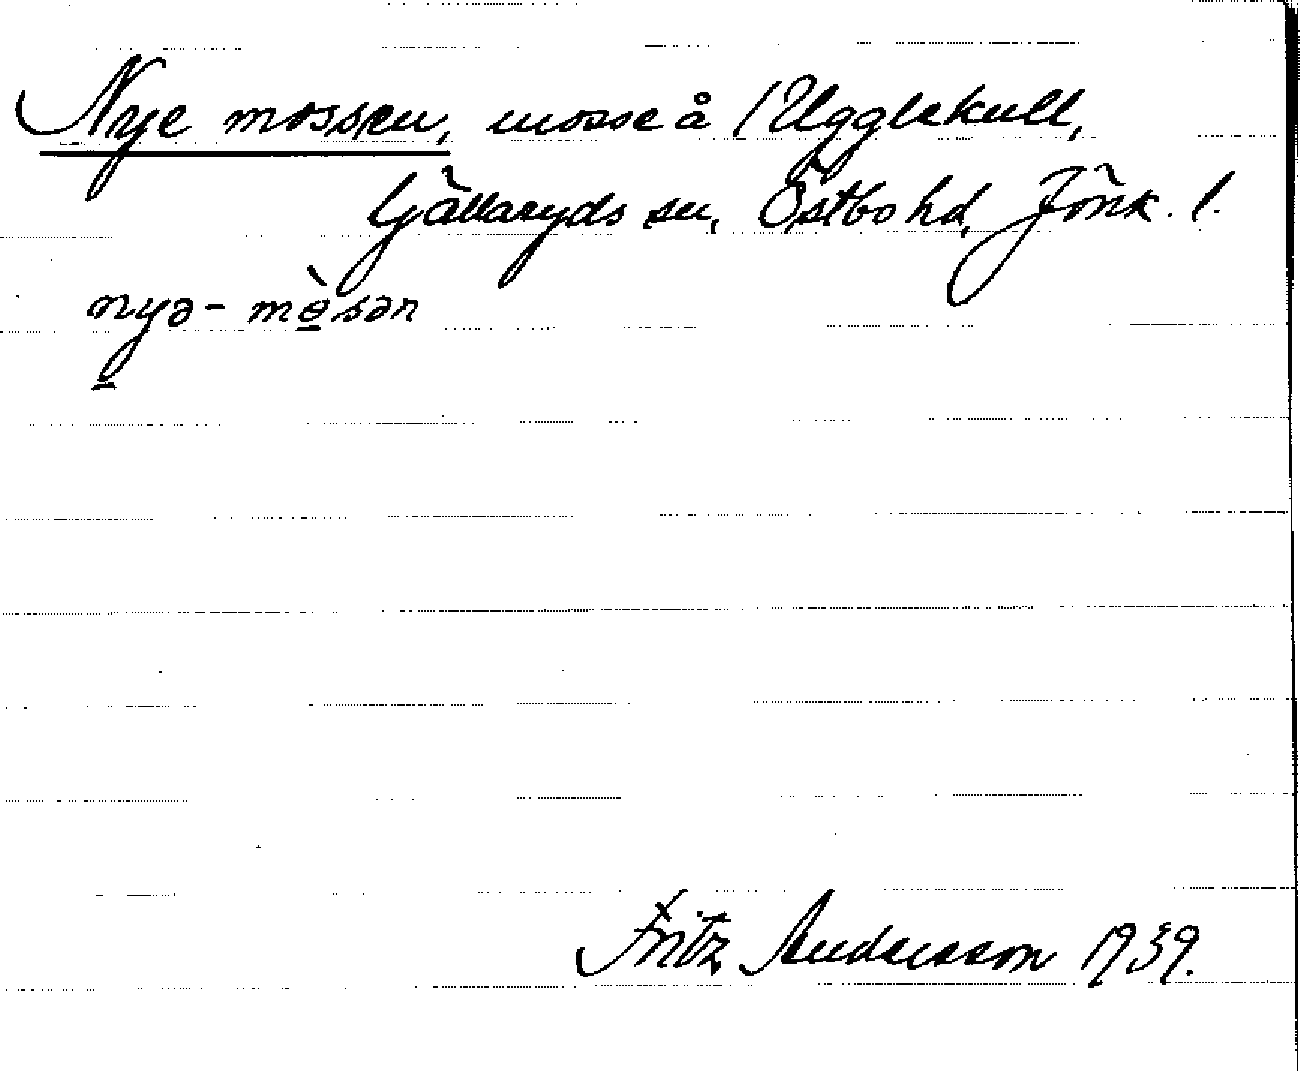 Nye mossen, mosse å Ugglekull,
Gällaryds sn, Östbo hd, Jönk. l.
nyə- mɵ̀sən
Fritz Andersson 1939.